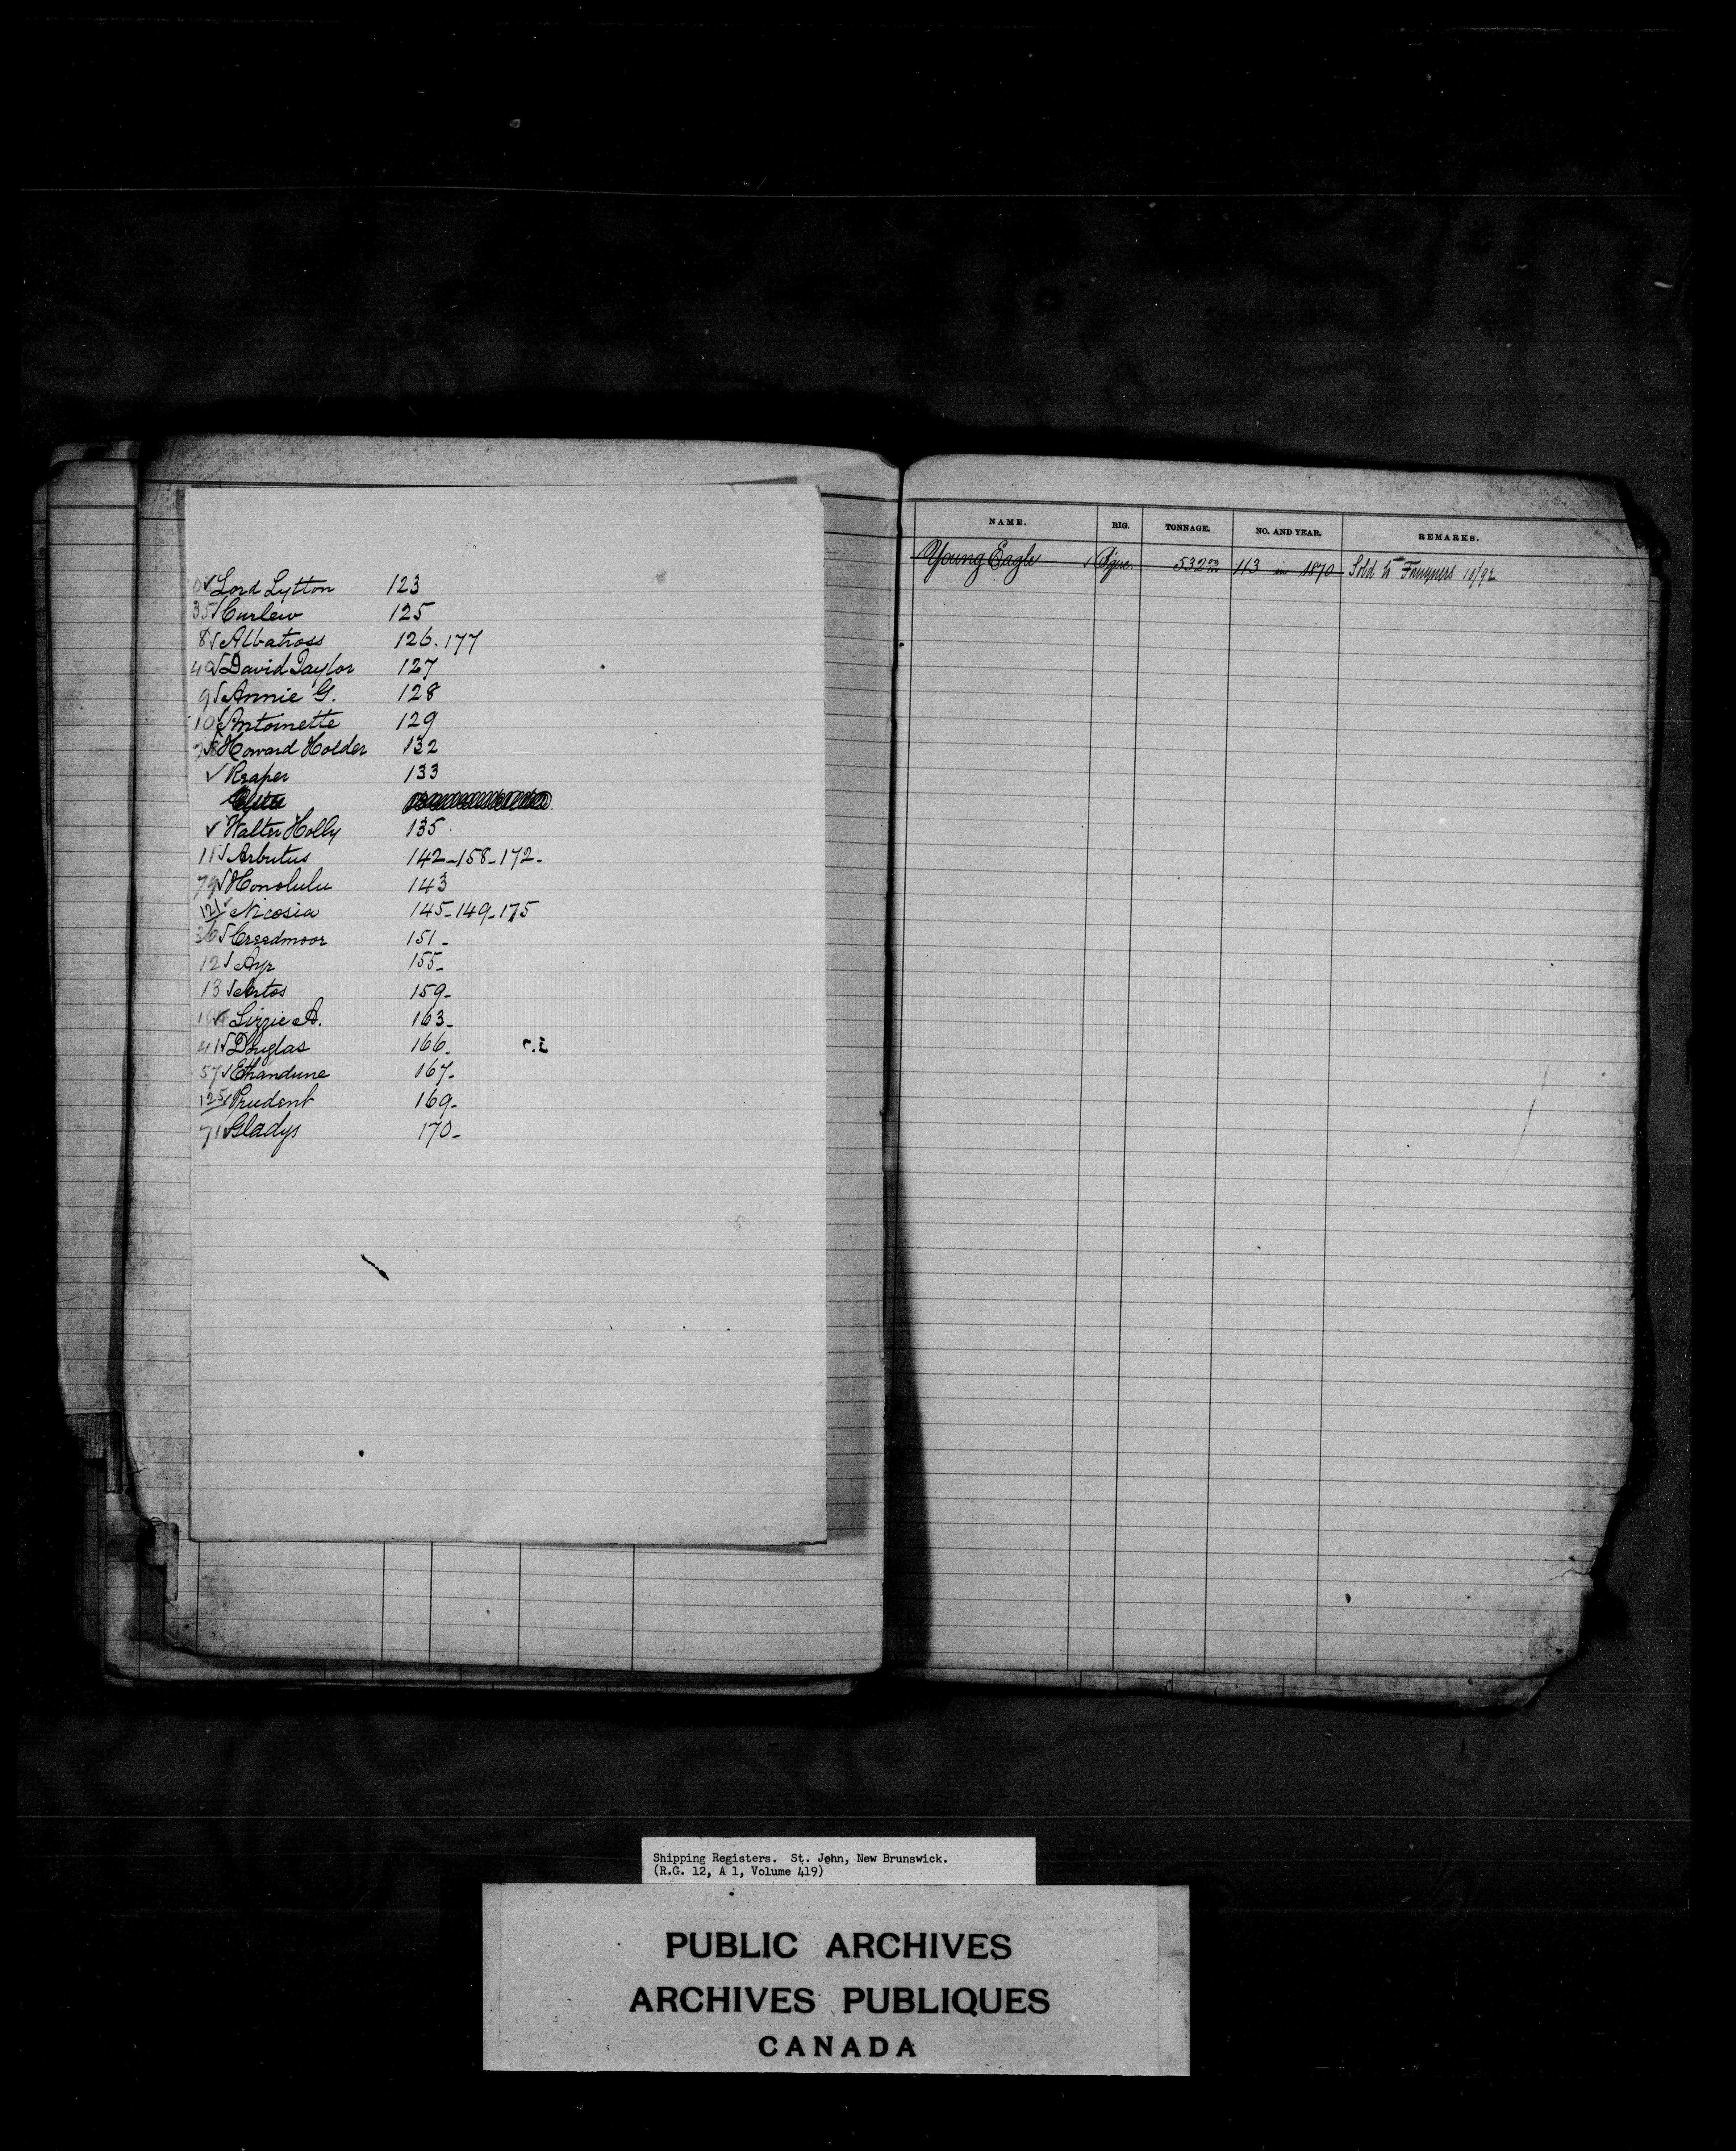 ✓ Lord Lytton 123
35 ✓ Curlew 125
8 ✓ Albatross 126. 177
40 ✓ David Taylor 127
9 ✓ Annie G. 128
10 ✓ Antoinette 129
✓ Howard Holder 132
✓ Reaper 133
✓ Walter Holly 135
11 ✓ Arbutus 142-158-172-
79 ✓ Honolulu 143
121 ✓ Nicosia 145-149-175
36 ✓ Creedmoor 151-
12 ✓ Ayr 155-
13 ✓ Artos 159-
✓ Lizzie A. 163-
41 ✓ Douglas 166.
57 ✓ Ethandune 167-
125 ✓ Prudent 169-
71 ✓ Gladys 170-
NAME. RIG. TONNAGE. NO. AND YEAR. REMARKS.
Young Eagle ✓ 532 113 in 1870 Sold to 10/92
Shipping Registers. St. John, New Brunswick.
(R.G. 12, A 1, Volume 419)
PUBLIC ARCHIVES
ARCHIVES PUBLIQUES
CANADA